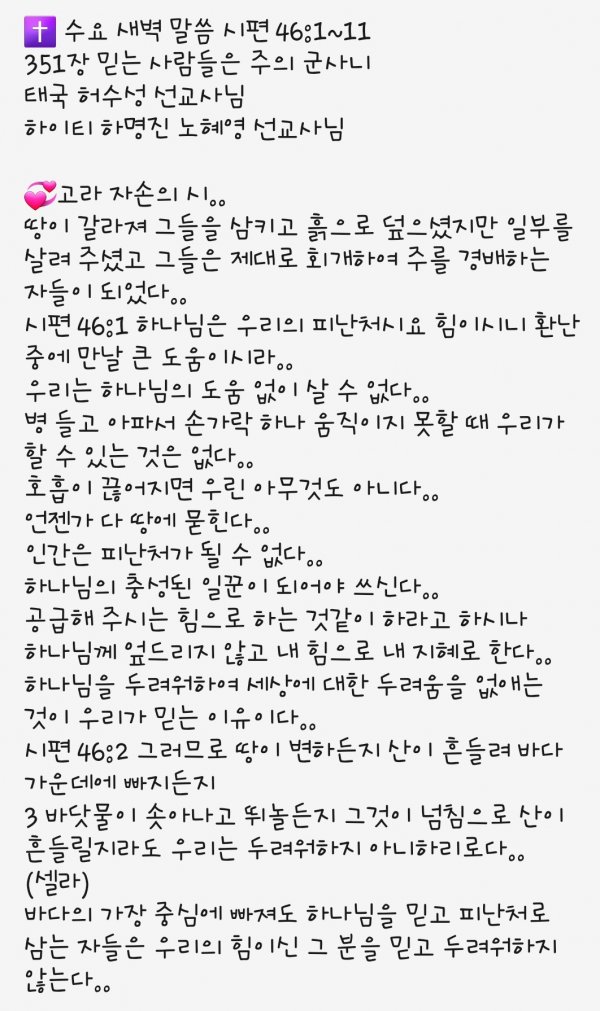 ✝️ 수요 새벽 말씀 시편 46:1~11
351장 믿는 사람들은 주의 군사니
태국 허수성 선교사님
하이티 하명진 노혜영 선교사님
💞고라 자손의 시。。
땅이 갈라져 그들을 삼키고 흙으로 덮으셨지만 일부를
살려 주셨고 그들은 제대로 회개하여 주를 경배하는
자들이 되었다。。
시편 46:1 하나님은 우리의 피난처시요 힘이시니 환난
중에 만날 큰 도움이시라。。
우리는 하나님의 도움 없이 살 수 없다。。
병 들고 아파서 손가락 하나 움직이지 못할 때 우리가
할 수 있는 것은 없다。。
호흡이 끊어지면 우린 아무것도 아니다。。
언젠가 다 땅에 묻힌다。。
인간은 피난처가 될 수 없다。。
하나님의 충성된 일꾼이 되어야 쓰신다。。
공급해 주시는 힘으로 하는 것같이 하라고 하시나
하나님께 엎드리지 않고 내 힘으로 내 지혜로 한다。。
하나님을 두려워하여 세상에 대한 두려움을 없애는
것이 우리가 믿는 이유이다。。
시편 46:2 그러므로 땅이 변하든지 산이 흔들려 바다
가운데에 빠지든지
3 바닷물이 솟아나고 뛰놀든지 그것이 넘침으로 산이
흔들릴지라도 우리는 두려워하지 아니하리로다。。
(셀라)
바다의 가장 중심에 빠져도 하나님을 믿고 피난처로
삼는 자들은 우리의 힘이신 그 분을 믿고 두려워하지
않는다。。